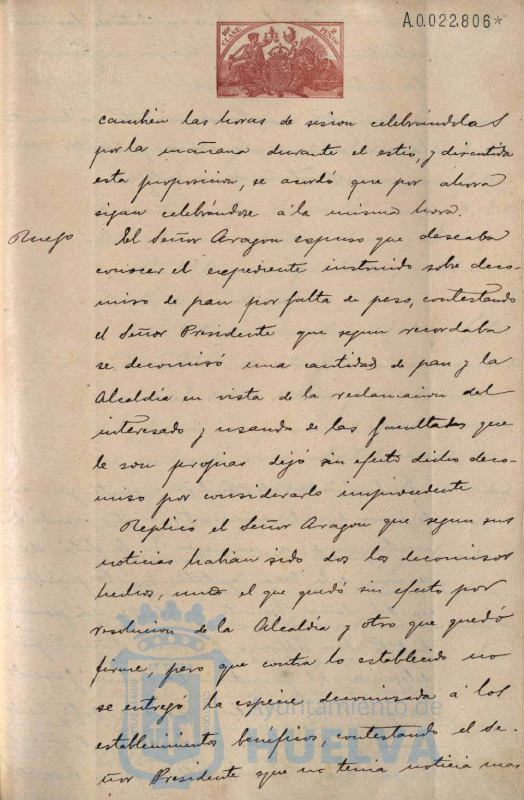 10ª CLASE
2 PESETAS
A.0.022.806*
cambien las horas de sesion celebrándolas
por la mañana durante el estio, y discutida
esta proposicion, se acordó que por ahora
sigan celebrándose á la misma hora.
Ruego
El Señor Aragon espuso que deseaba
conocer el espediente instruido sobre deco-
miso de pan por falta de peso, contestando
el Señor Presidente que segun recordaba
se decomisó una cantidad de pan y la
Alcaldía en vista de la reclamacion del
interesado y usando de las facultades que
le son propias dejó sin efecto dicho deco-
miso por considerarlo improcedente
Replicó el Señor Aragon que segun sus
noticias habian sido dos los decomisos
hechos, uno el que quedó sin efecto por
resolucion de la Alcaldía y otro que quedó
firme, pero que contra lo establecido no
se entregó la especie decomisada á los
establecimientos beneficos, contestando el Se-
ñor Presidente que no tenia noticia mas
Ayuntamiento de
HUELVA